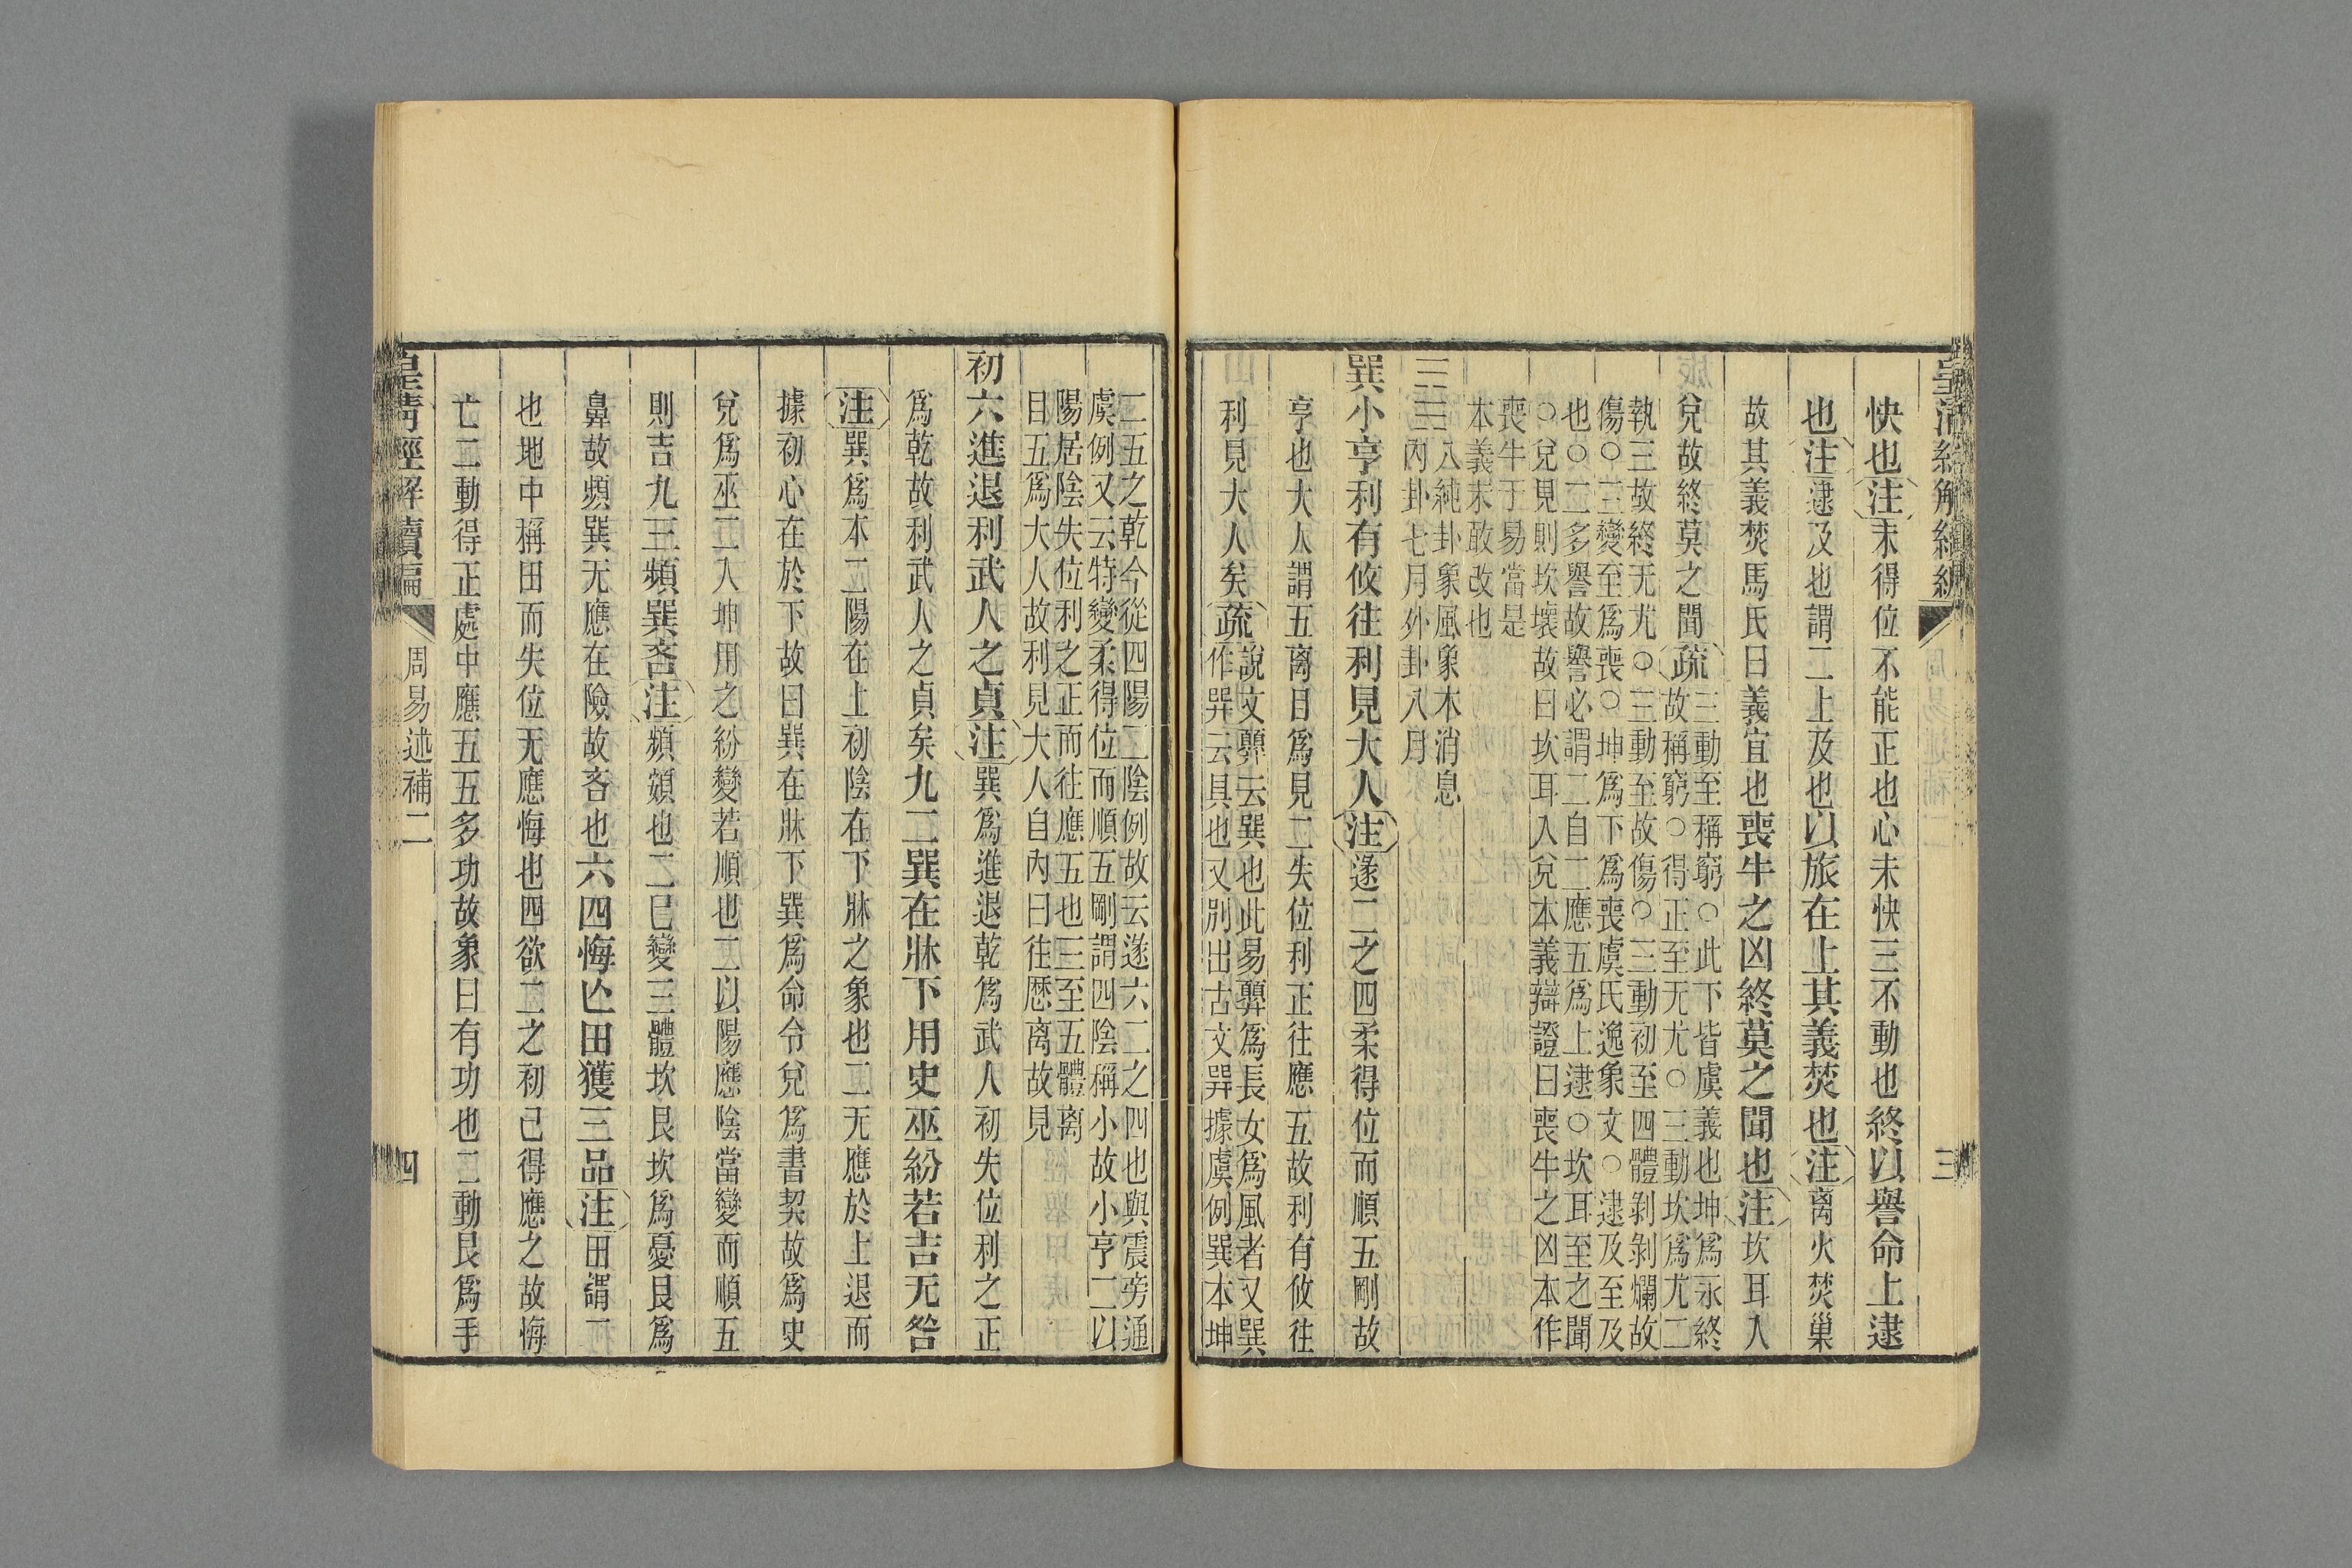 皇清經解續編
三
快也注未得位不能正也心未快三不動也終以譽命上逮
也注逮及也謂二上及也以旅在上其義焚也注离火焚巢
故其義焚馬氏曰義宜也喪牛之凶終莫之聞也注坎耳入
兌故終莫之聞疏三動至稱窮○此下皆虞義也坤爲永終
故稱窮○得正至无尤○三動坎爲尤二
執三故終无尤○三動至故傷○三動初至四體剝剝爛故
傷○三變至爲喪○坤爲下爲喪虞氏逸象文○逮及至及
也○二多譽故譽必謂二自二應五爲上逮○坎耳至之聞
○兌見則坎壞故曰坎耳入兌本義辯證曰喪牛之凶本作
喪牛于易當是
本義未敢改也
八純卦象風象木消息
內卦七月外卦八月
巽小亨利有攸往利見大人注遂二之四柔得位而順五剛故
亨也大人謂五离目爲見二失位利正往應五故利有攸往
利見大人矣疏說文顨云巽也此易顨爲長女爲風者又巽
作巺云具也又別出古文巺據虞例巽本坤
二五之乾今從四陽二陰例故云遂六二之四也與震旁通
虞例又云特變柔得位而順五剛謂四陰稱小故小亨二以
陽居陰失位利之正而往應五也三至五體离
目五爲大人故利見大人自內曰往歷离故見
初六進退利武人之貞注巽爲進退乾爲武人初失位利之正
爲乾故利武人之貞矣九二巽在牀下用史巫紛若吉无咎
注巽爲本二陽在上初陰在下牀之象也二无應於上退而
據初心在於下故曰巽在牀下巽爲命令兌爲書契故爲史
兌爲巫二入坤用之紛變若順也二以陽應陰當變而順五
則吉九三頻巽吝注頻頞也二已變三體坎艮坎爲憂艮爲
鼻故頻巽无應在險故吝也六四悔亾田獲三品注田謂二
也地中稱田而失位无應悔也四欲二之初己得應之故悔
亡二動得正處中應五五多功故象曰有功也二動艮爲手
皇清經解續編
周易述補二
四